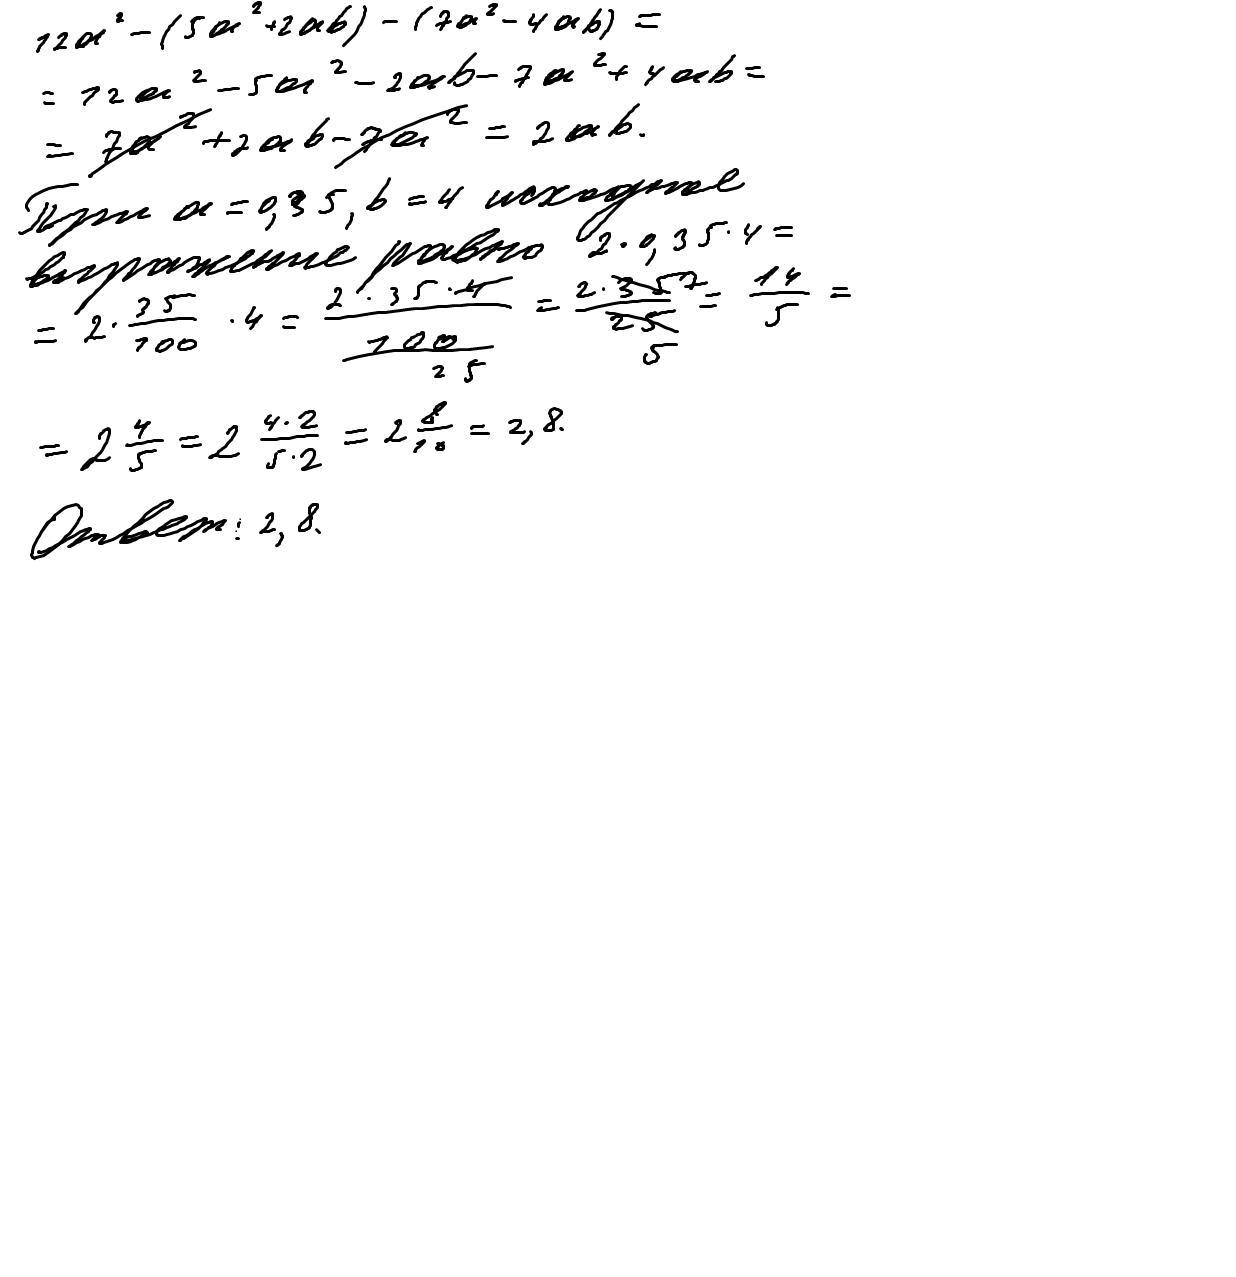 12a² - (5a² + 2ab) - (7a² - 4ab) =
= 12a² - 5a² - 2ab - 7a² + 4ab =
= 7a² + 2ab - 7a² = 2ab.
При a = 0,35, b = 4 исходное
выражение равно 2 · 0,35 · 4 =
= 2 · 35/100 · 4 = 2 · 35 · 4/100 25 = 2 · 35 7/25 5 = 14/5 =
= 2 4/5 = 2 4 · 2/5 · 2 = 2 8/10 = 2,8.
Ответ: 2,8.